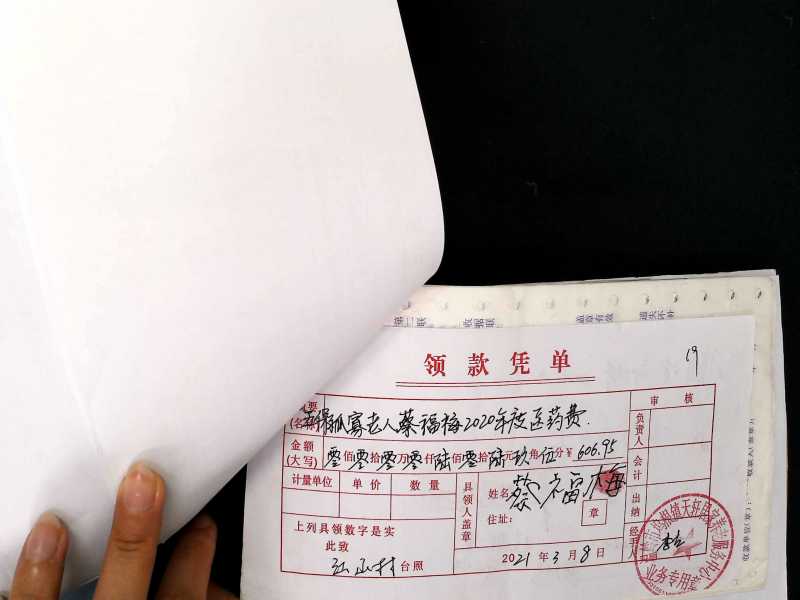 19
领款凭单
(名称)
孤寡老人蔡福梅2020年度医药费.
审核
负责人
金额
(大写)
零佰零拾零万零仟陆佰零拾陆元玖角伍分¥606.95
会计
计量单位 单价 数量
具领人盖章
姓名:蔡福梅
住址:
章
出纳
经手人
上列具领数字是实
此致
江山村台照
2021年3月8日
业务专用章